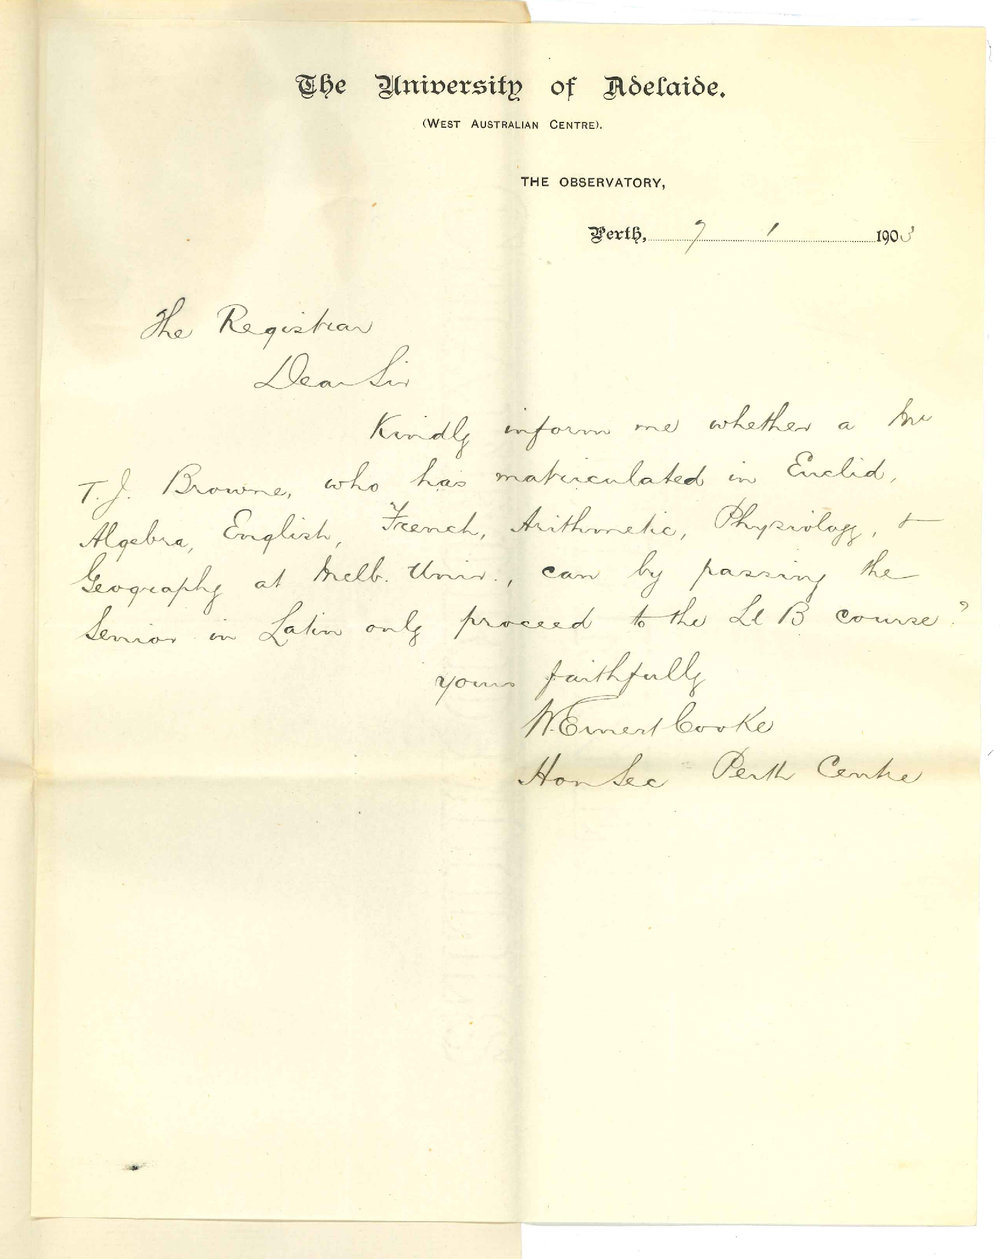 The University of Adelaide.
(WEST AUSTRALIAN CENTRE).
THE OBSERVATORY,
Perth, 7 1 1903
The Registrar
Dear Sir
Kindly inform me whether a Mr
T. J. Browne, who has matriculated in Euclid,
Algebra, English, French, Arithmetic, Physiology, &
Geography at Melb. Univ., can by passing the
Senior in Latin only proceed to the Ll B course?
yours faithfully
W. Ernest Cooke
Hon Sec Perth Centre